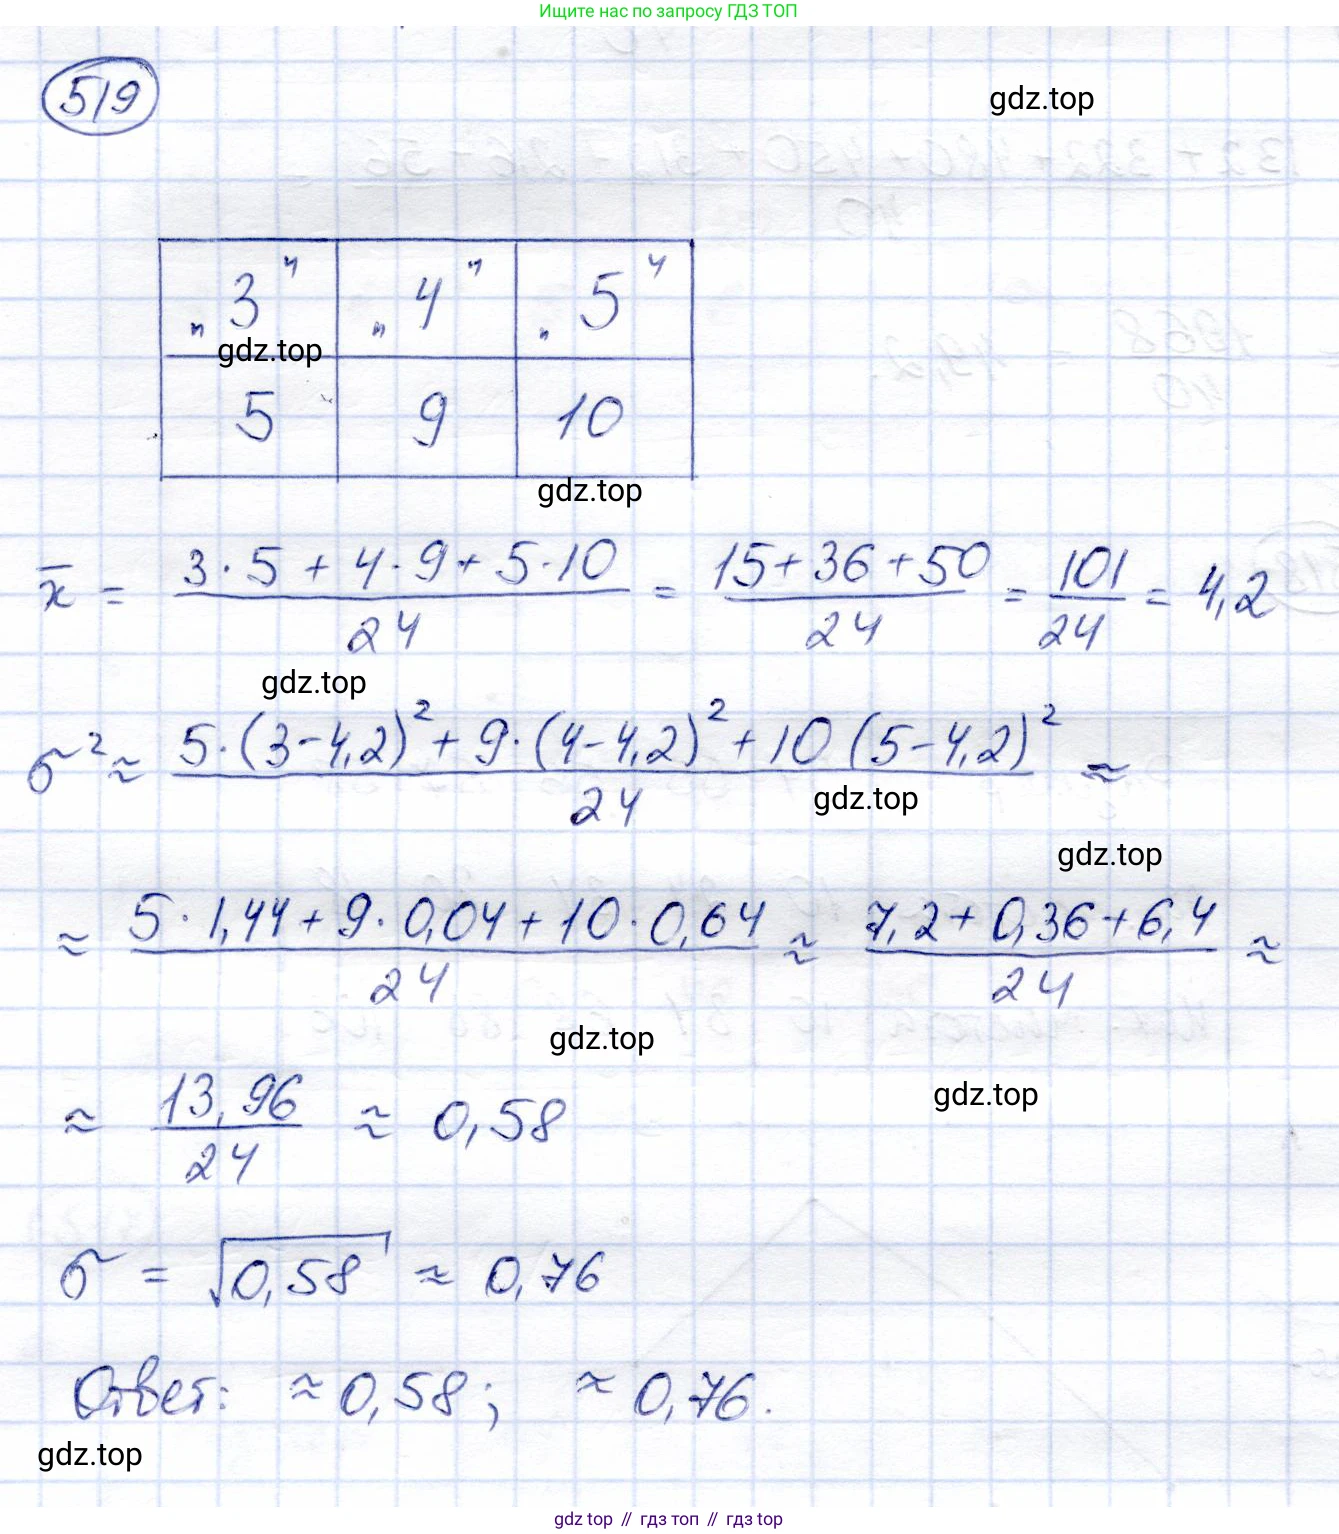 Ищите нас по запросу ГДЗ ТОП
519
gdz.top
„3“ „4“ „5“
gdz.top
5 9 10
gdz.top
x̄ = (3·5 + 4·9 + 5·10)/24 = (15+36+50)/24 = 101/24 = 4,2
gdz.top
σ² ≈ (5·(3-4,2)² + 9·(4-4,2)² + 10(5-4,2)²)/24 ≈
gdz.top
gdz.top
≈ (5·1,44 + 9·0,04 + 10·0,64)/24 ≈ (7,2 + 0,36 + 6,4)/24 ≈
gdz.top
gdz.top
≈ 13,96/24 ≈ 0,58
σ = √0,58 ≈ 0,76
Ответ: ≈ 0,58; ≈ 0,76.
gdz.top
gdz top // гдз топ // gdz top